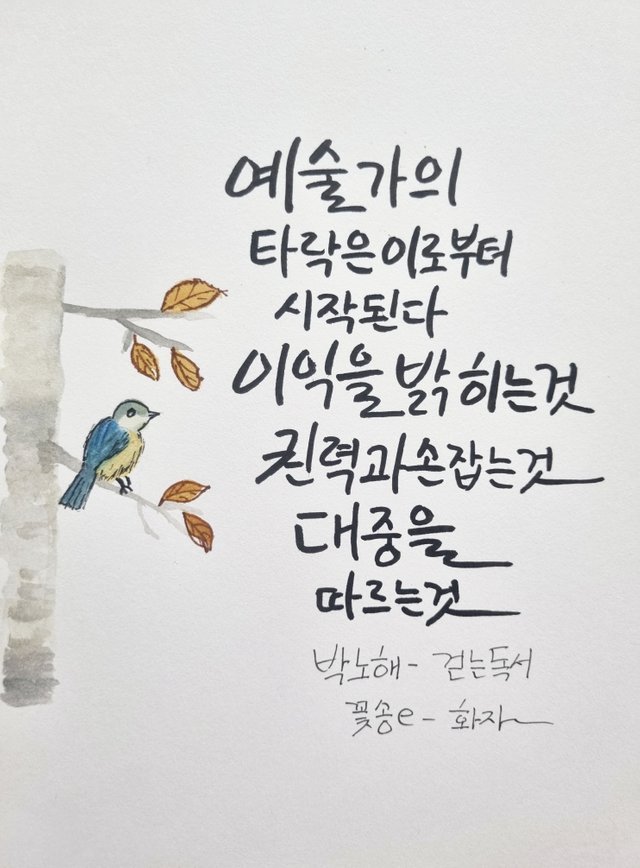 예술가의
타락은 이로부터
시작된다
이익을 밝히는 것
권력과 손잡는 것
대중을
따르는 것
박노해 - 걷는 독서
꽃송e - 화자